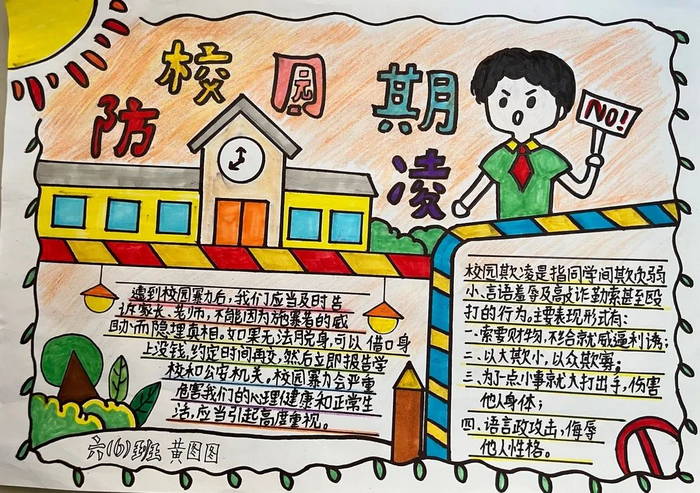 防校园期凌
NO!
遭到校园暴力后，我们应当及时告
诉家长、老师，不能因为施暴者的威
胁而隐埋真相。如果无法脱身，可以借口身
上没钱，约定时间再交，然后立即报告学
校和公安机关。校园暴力会严重
危害我们的心理健康和正常生
活，应当引起高度重视。
六(6)班 黄图图
校园欺凌是指同学间欺负弱
小、言语羞辱及敲诈勒索甚至殴
打的行为。主要表现形式有：
一、索要财物，不给就威逼利诱；
二、以大欺小，以众欺寡；
三、为了一点小事就大打出手，伤害
他人身体；
四、语言政攻击，侮辱
他人性格。